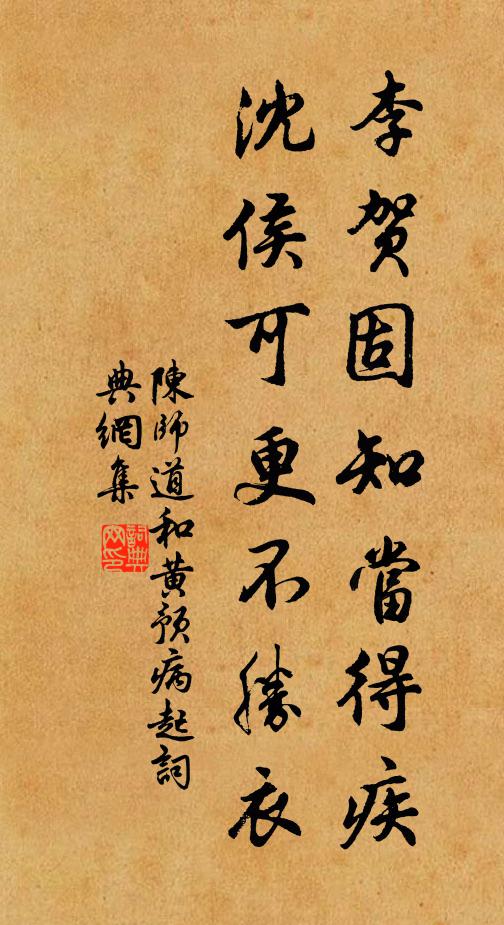 李贺固知當得疾
沈侯可更不勝衣
陳師道和黄預病起詞
典網集
詞典
网印